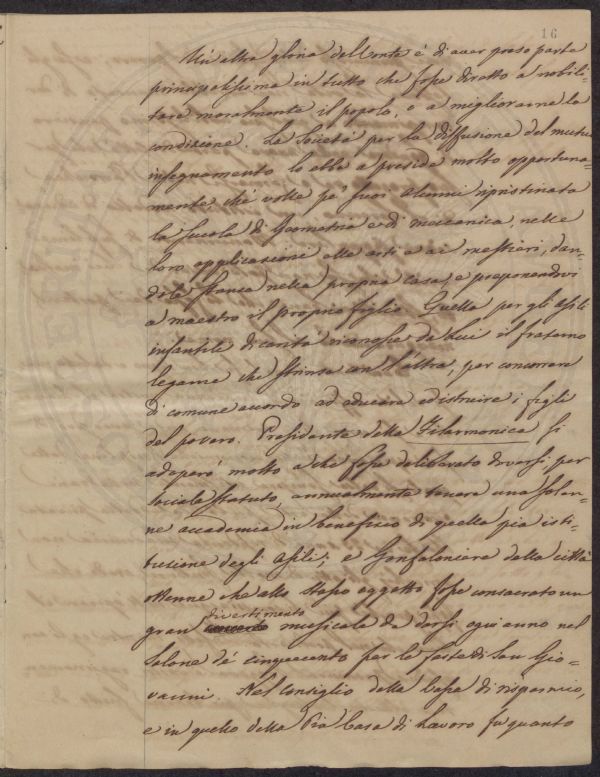 16
Un'altra gloria del Conte è di aver preso parte
principalissima in tutto che fosse diretto a nobili-
tare moralmente il popolo, e a migliorarne la
condizione. La Società per la diffusione del mutuo
insegnamento lo ebbe a preside molto opportuna-
mente, chè volle pe' suoi alunni ripristinata
la scuola di Geometria e di meccanica, nelle
loro applicazioni alle arti e ai mestieri, dan-
dole stanza nella propria casa, e preponendovi
a maestro il proprio figlio. Quella per gli Asili
infantili di carità riconosce da Lui il fraterno
legame che strinse con l'altra, per concorrere
di comune accordo ad educare ed istruire i figli
del povero. Presidente della Filarmonica si
adoperò molto a che fosse deliberato doversi per
sociale statuto, annualmente tenere una solen-
ne accademia in beneficio di quella pia isti-
tuzione degli Asili; e Gonfaloniere della città
ottenne che allo stesso oggetto fosse consacrato un
gran divertimento musicale da darsi ogni anno nel
Salone de' cinquecento per le feste di San Gio-
vanni. Nel consiglio della Cassa di risparmio,
e in quello della Pia Casa di Lavoro fu quanto